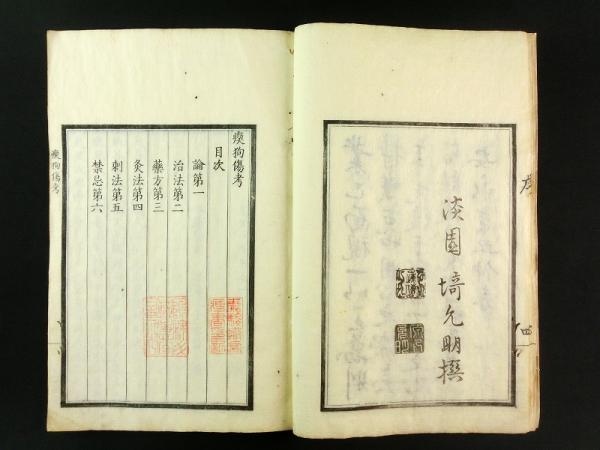 淡園 埼允明撰
序
四
瘈狗傷考
目次
論第一
治法第二
藥方第三
灸法第四
刺法第五
禁忌第六
瘈狗傷考